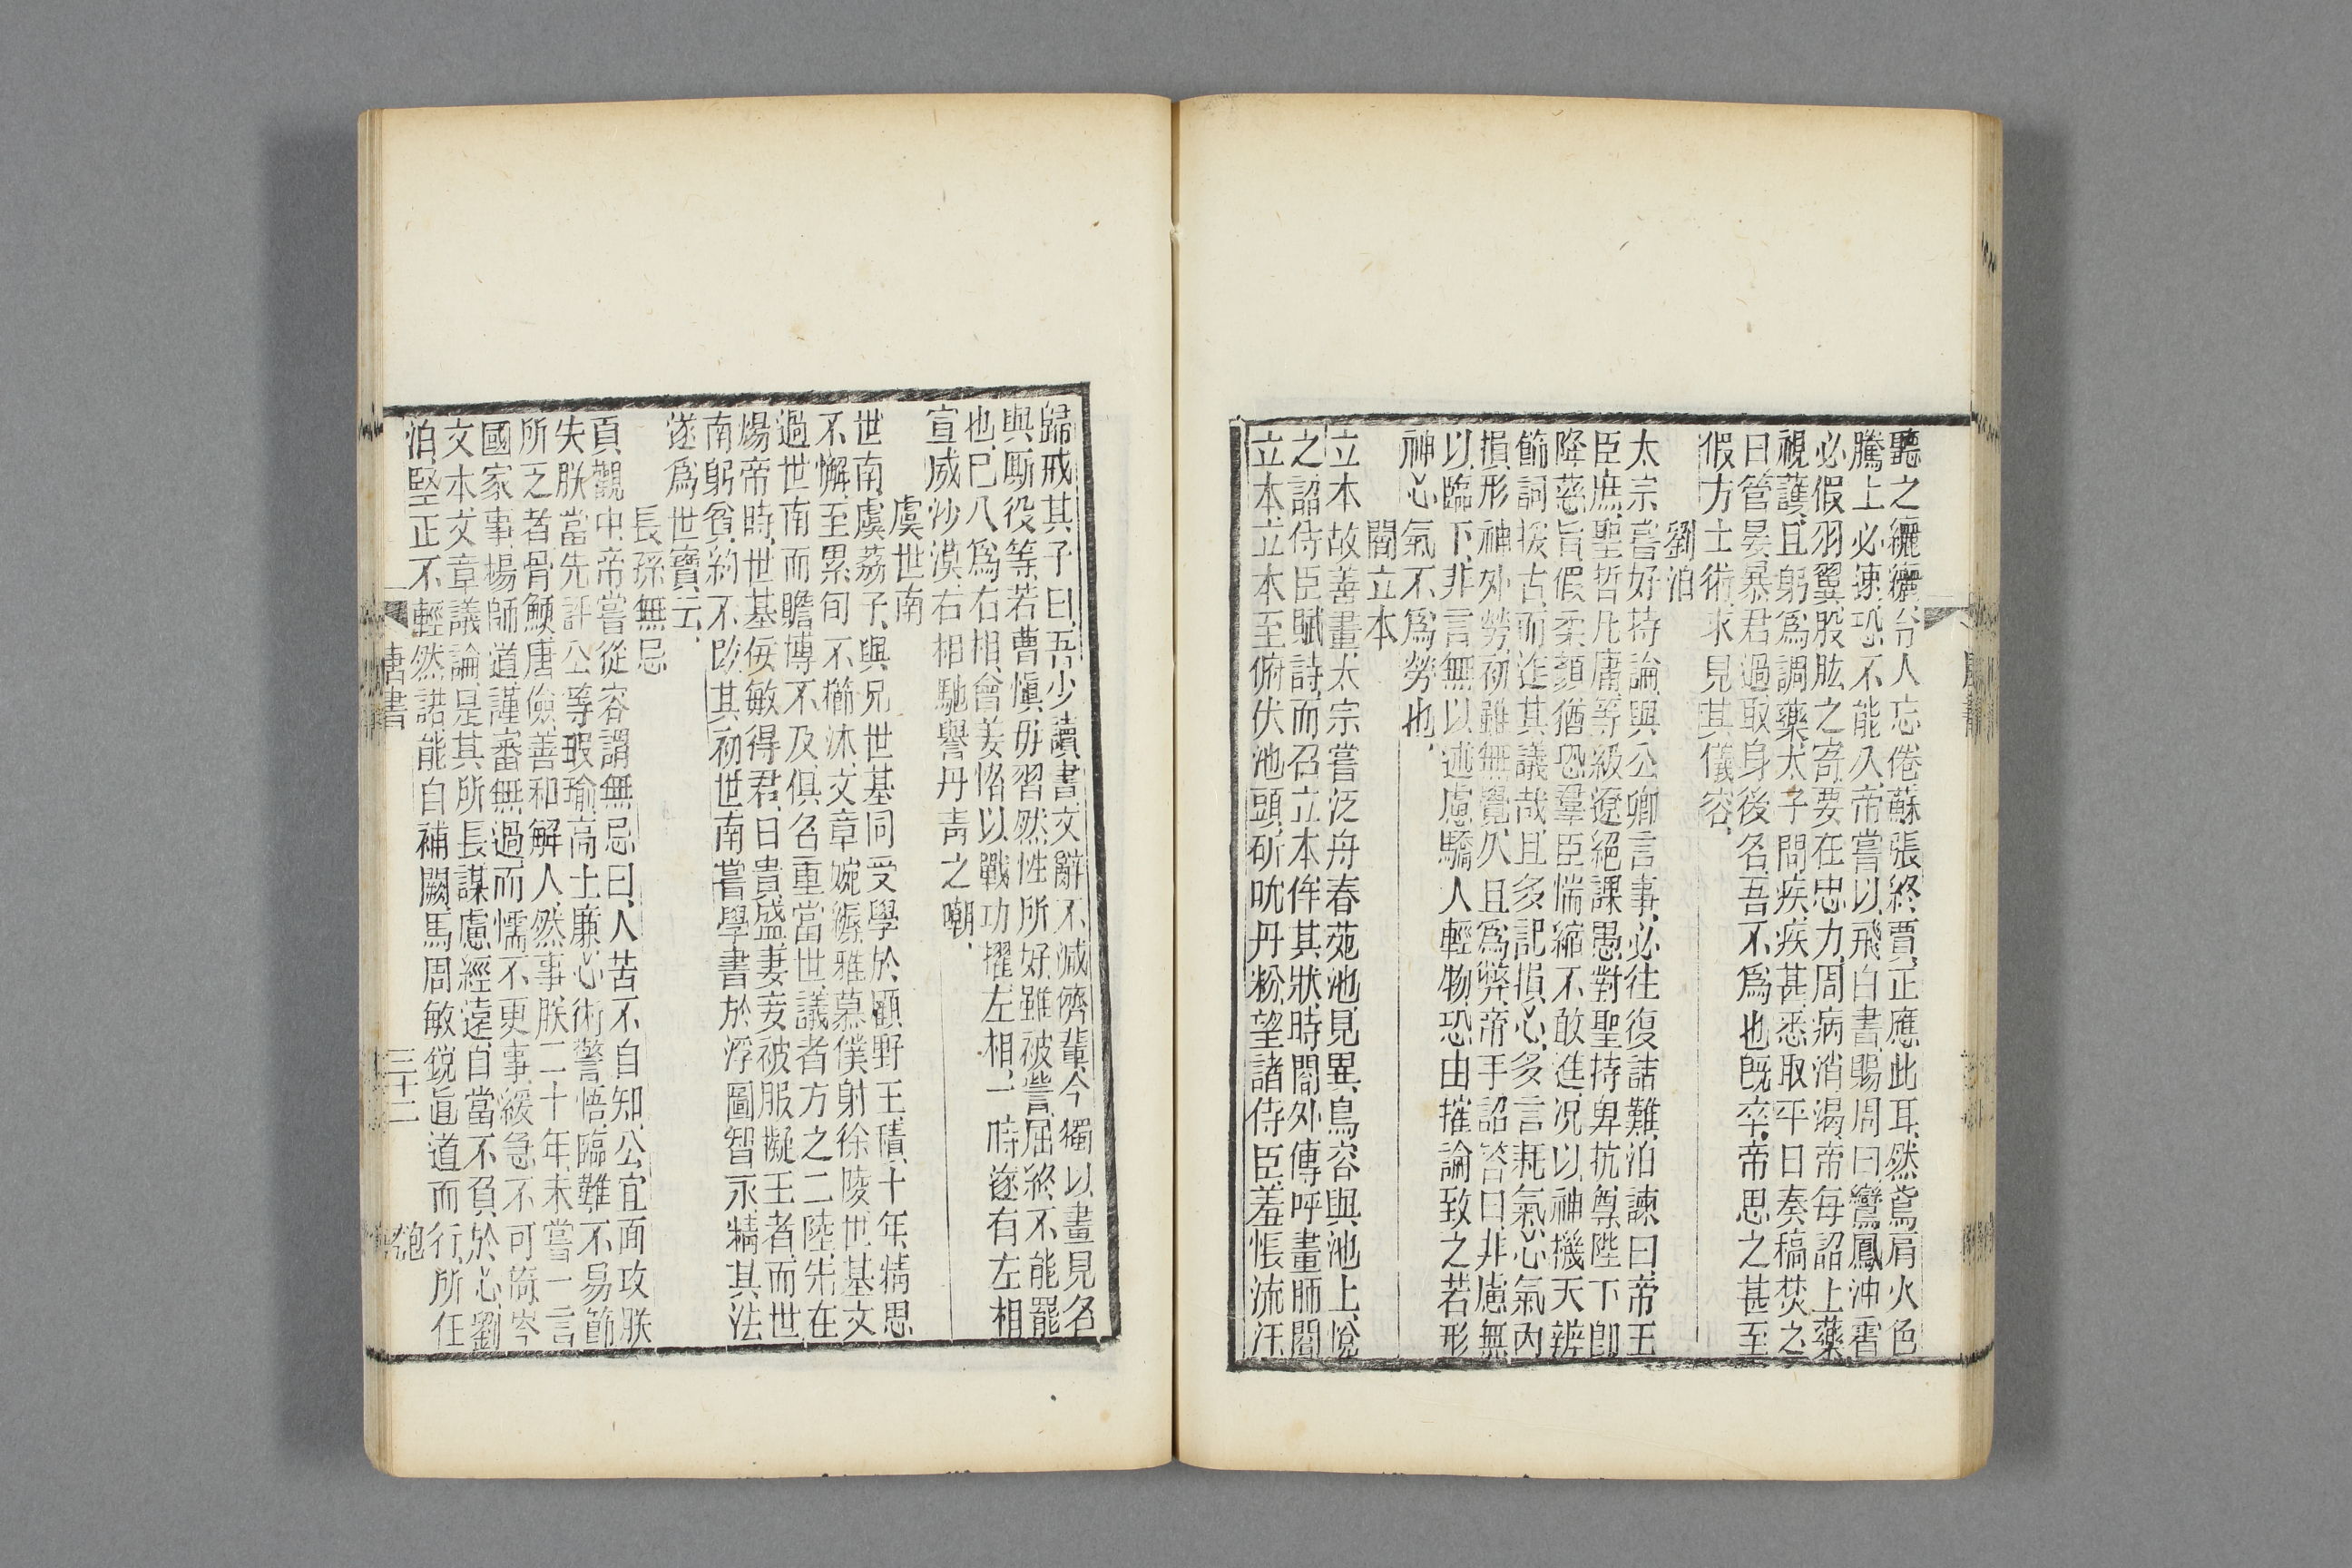 聽之纚纚令人忘倦蘇張終賈正應此耳然鳶肩火色
騰上必速恐不能久帝嘗以飛白書賜周曰鸞鳳沖霄
必假羽翼股肱之寄要在忠力周病消渴帝每詔上藥
視護且躬爲調藥太子問疾疾甚悉取平日奏稿焚之
曰管晏暴君過取身後名吾不爲也既卒帝思之甚至
假方士術求見其儀容
劉洎
太宗嘗好持論與公卿言事必往復詰難洎諫曰帝王
臣庶聖哲凡庸等級遼絕課愚對聖持卑抗尊陛下卽
降慈旨假柔顏猶恐羣臣惴縮不敢進况以神機天辨
飾詞援古而迮其議哉且多記損心多言耗氣心氣內
損形神外勞初雖無覺久且爲弊帝手詔答曰非慮無
以臨下非言無以述慮驕人輕物恐由摧論致之若形
神心氣不爲勞也
閻立本
立本故善畫太宗嘗泛舟春苑池見異鳥容與池上悅
之詔侍臣賦詩而召立本侔其狀時閤外傳呼畫師閻
立本立本至俯伏池頭研吮丹粉望諸侍臣羞悵流汗
歸戒其子曰吾少讀書文辭不減儕輩今獨以畫見名
與廝役等若曹愼毋習然性所好雖被訾屈終不能罷
也已八爲右相會姜恪以戰功擢左相一時遂有左相
宣威沙漠右相馳譽丹青之嘲
虞世南
世南虞荔子與兄世基同受學於顧野王積十年精思
不懈至累旬不櫛沐文章婉縟雅慕僕射徐陵世基文
過世南而贍博不及俱名重當世議者方之二陸朱在
煬帝時世基佞敏得君日貴盛妻妾被服擬王者而世
南躬貧約不改其初世南嘗學書於浮圖智永精其法
遂爲世寶云
長孫無忌
貞觀中帝嘗從容謂無忌曰人苦不自知公宜面攻朕
失朕當先評公等瑕瑜高士廉心術警悟臨難不易節
所乏者骨鯁唐儉善和解人然事朕二十年未嘗一言
國家事楊師道謹審無過而懦不更事緩急不可倚岑
文本文章議論是其所長謀慮經遠自當不負於心劉
洎堅正不輕然諾能自補闕馬周敏銳眞道而行所任
唐書 三十二